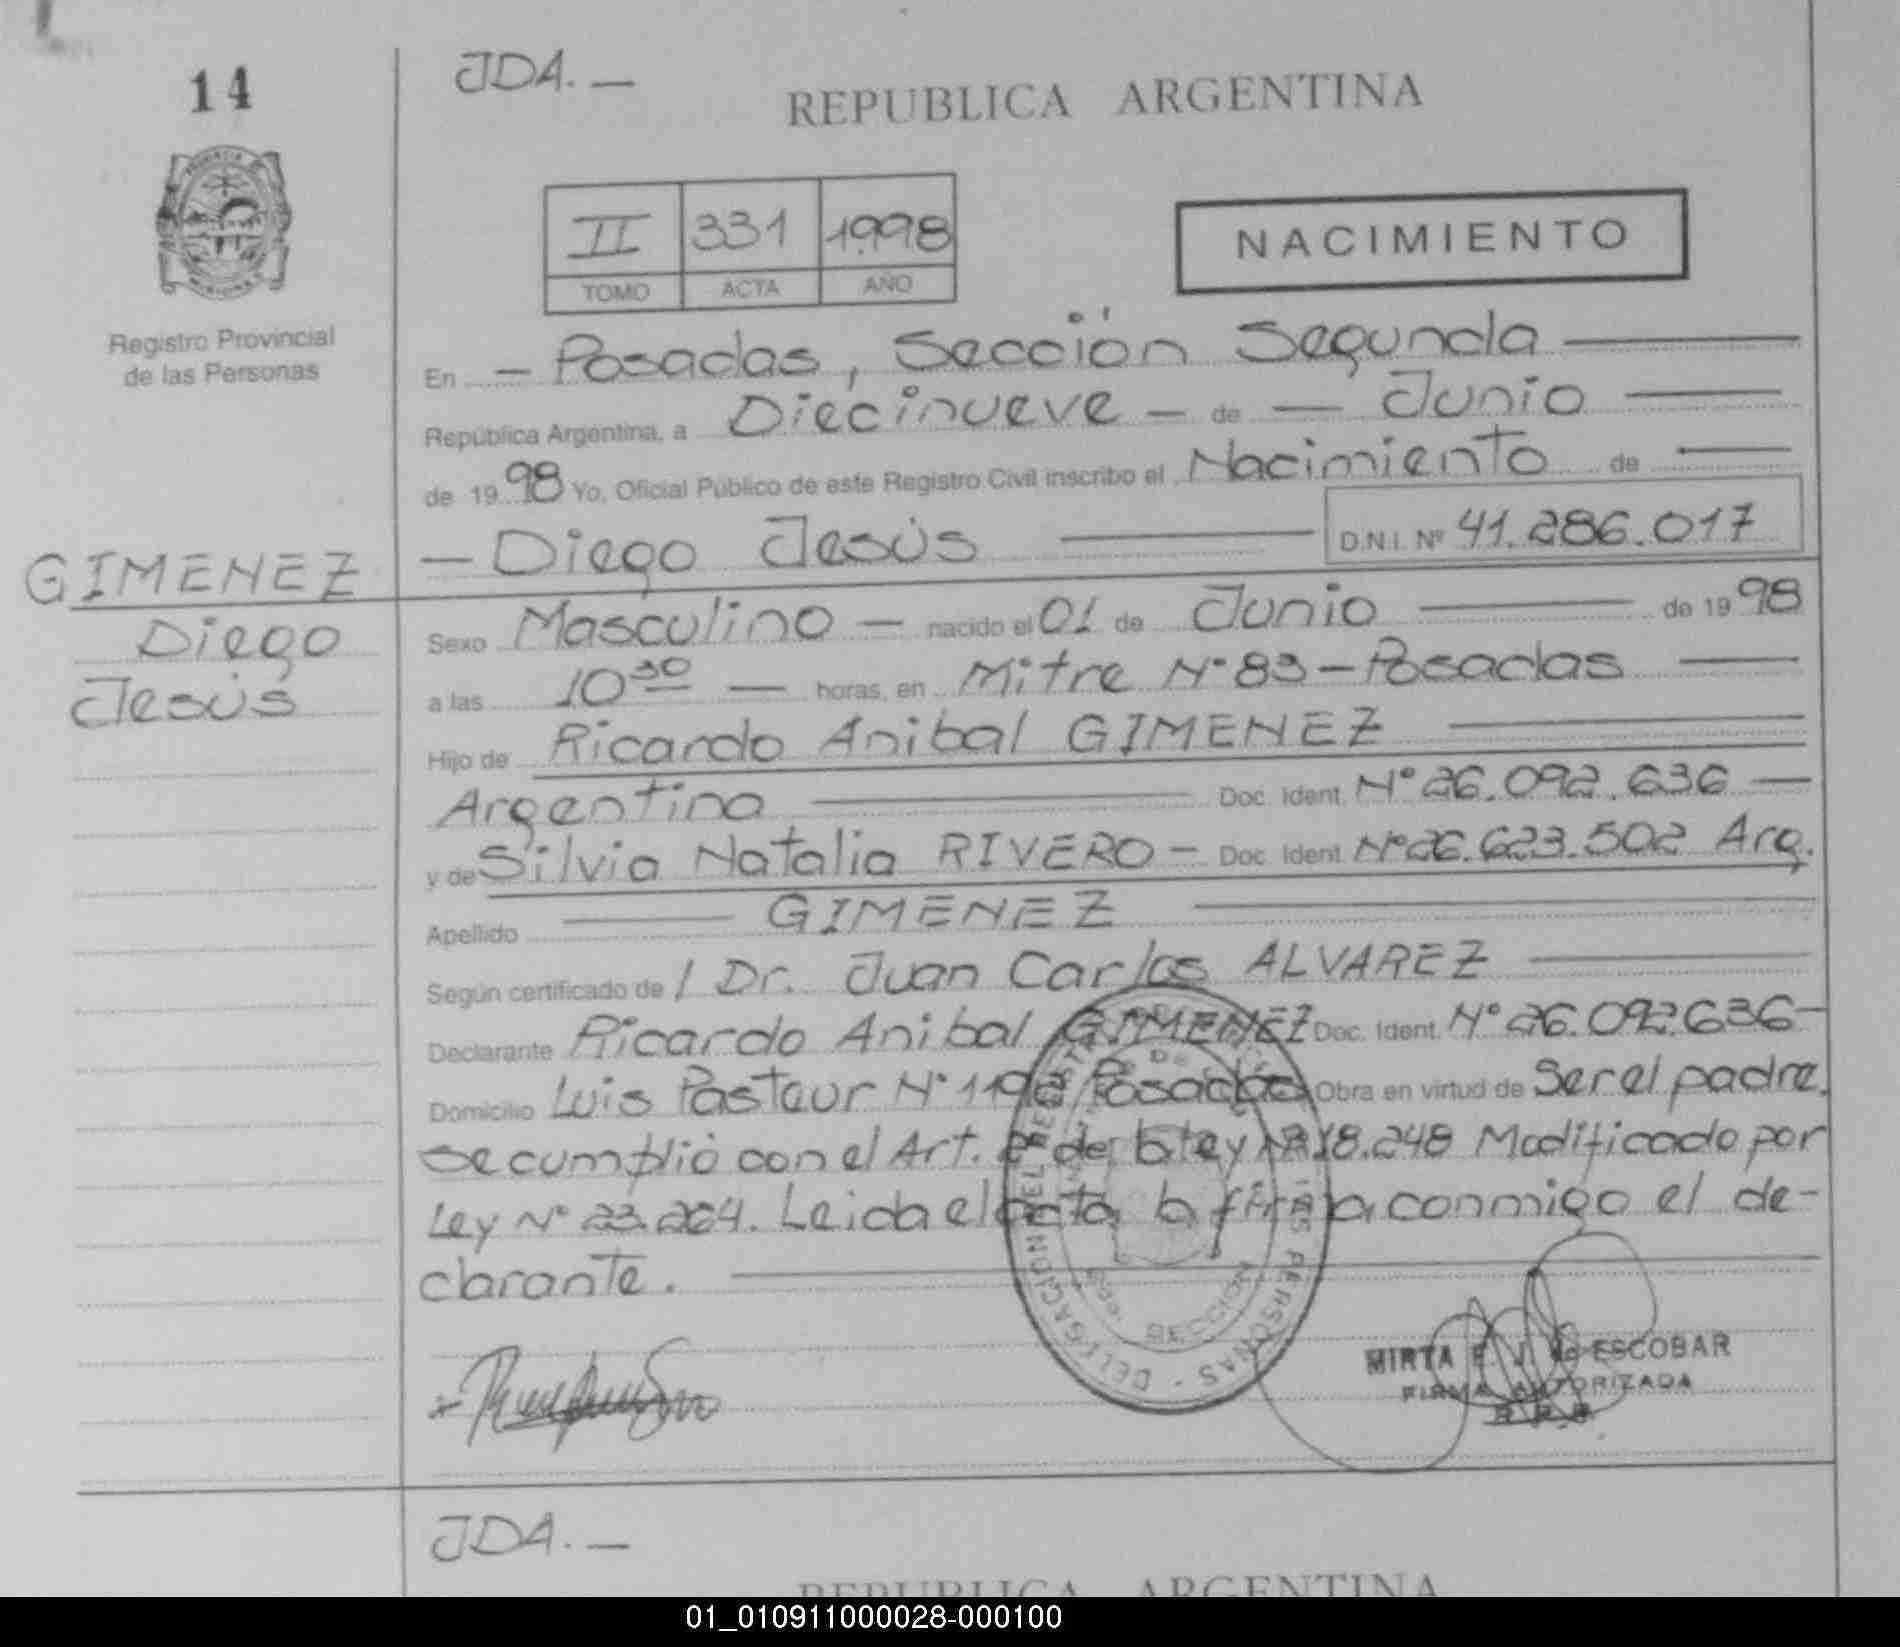 14
JDA. —
REPUBLICA ARGENTINA
II 331 1998
TOMO ACTA AÑO
NACIMIENTO
Registro Provincial
de las Personas
En — Posadas, Sección Segunda
República Argentina, a Diecinueve — de — Junio
de 1998 Yo, Oficial Público de este Registro Civil inscribo el Nacimiento de
— Diego Jesús D.N.I. Nº 41.286.017
GIMENEZ
Diego
Jesús
Sexo Masculino — nacido el 01 de Junio de 1998
a las 10³⁰ — horas, en Mitre Nº 83 – Posadas
Hijo de Ricardo Anibal GIMENEZ
Argentina Doc. Ident. Nº 26.092.636 —
y de Silvia Natalia RIVERO — Doc. Ident. Nº 26.623.502 Arg.
Apellido GIMENEZ
Según certificado de / Dr. Juan Carlos ALVAREZ
Declarante Ricardo Anibal GIMENEZ Doc. Ident. Nº 26.092.636 —
Domicilio Luis Pasteur Nº Posadas Obra en virtud de Ser el padre.
Se cumplió con el Art. de la Ley Nº 18.248 Modificado por
Ley Nº 23.264. Leida el acta, la firma conmigo el de-
clarante.
DELEGACION DEL REGISTRO DE LAS PERSONAS
SECCION
MIRTA E. ESCOBAR
FIRMA AUTORIZADA
JDA. —
REPUBLICA ARGENTINA
01_010911000028-000100